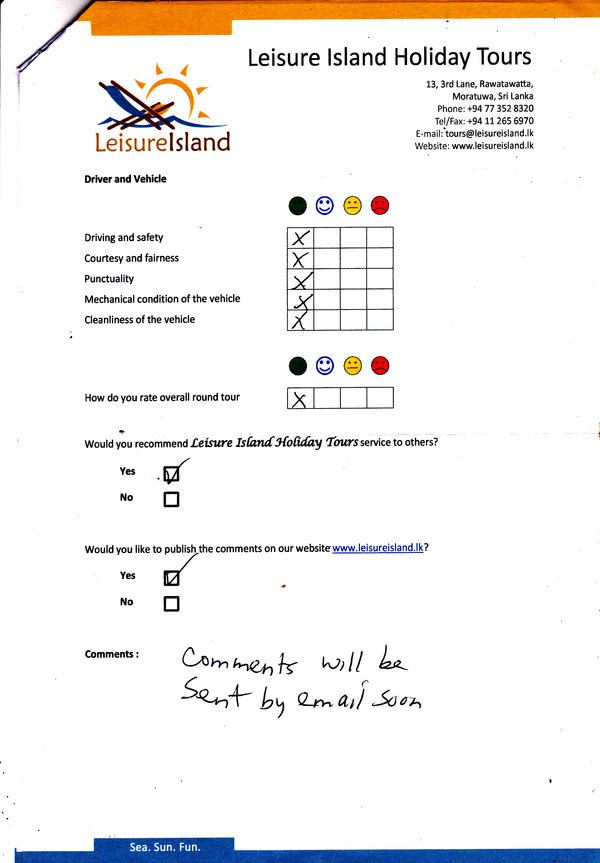 Leisure Island Holiday Tours
13, 3rd Lane, Rawatawatta,
Moratuwa, Sri Lanka
Phone: +94 77 352 8320
Tel/Fax: +94 11 265 6970
E-mail: tours@leisureisland.lk
Website: www.leisureisland.lk
LeisureIsland
Driver and Vehicle
Driving and safety X
Courtesy and fairness X
Punctuality X
Mechanical condition of the vehicle X
Cleanliness of the vehicle X
How do you rate overall round tour X
Would you recommend Leisure Island Holiday Tours service to others?
Yes
No
Would you like to publish the comments on our website www.leisureisland.lk?
Yes
No
Comments :
Comments will be
Sent by email soon
Sea. Sun. Fun.